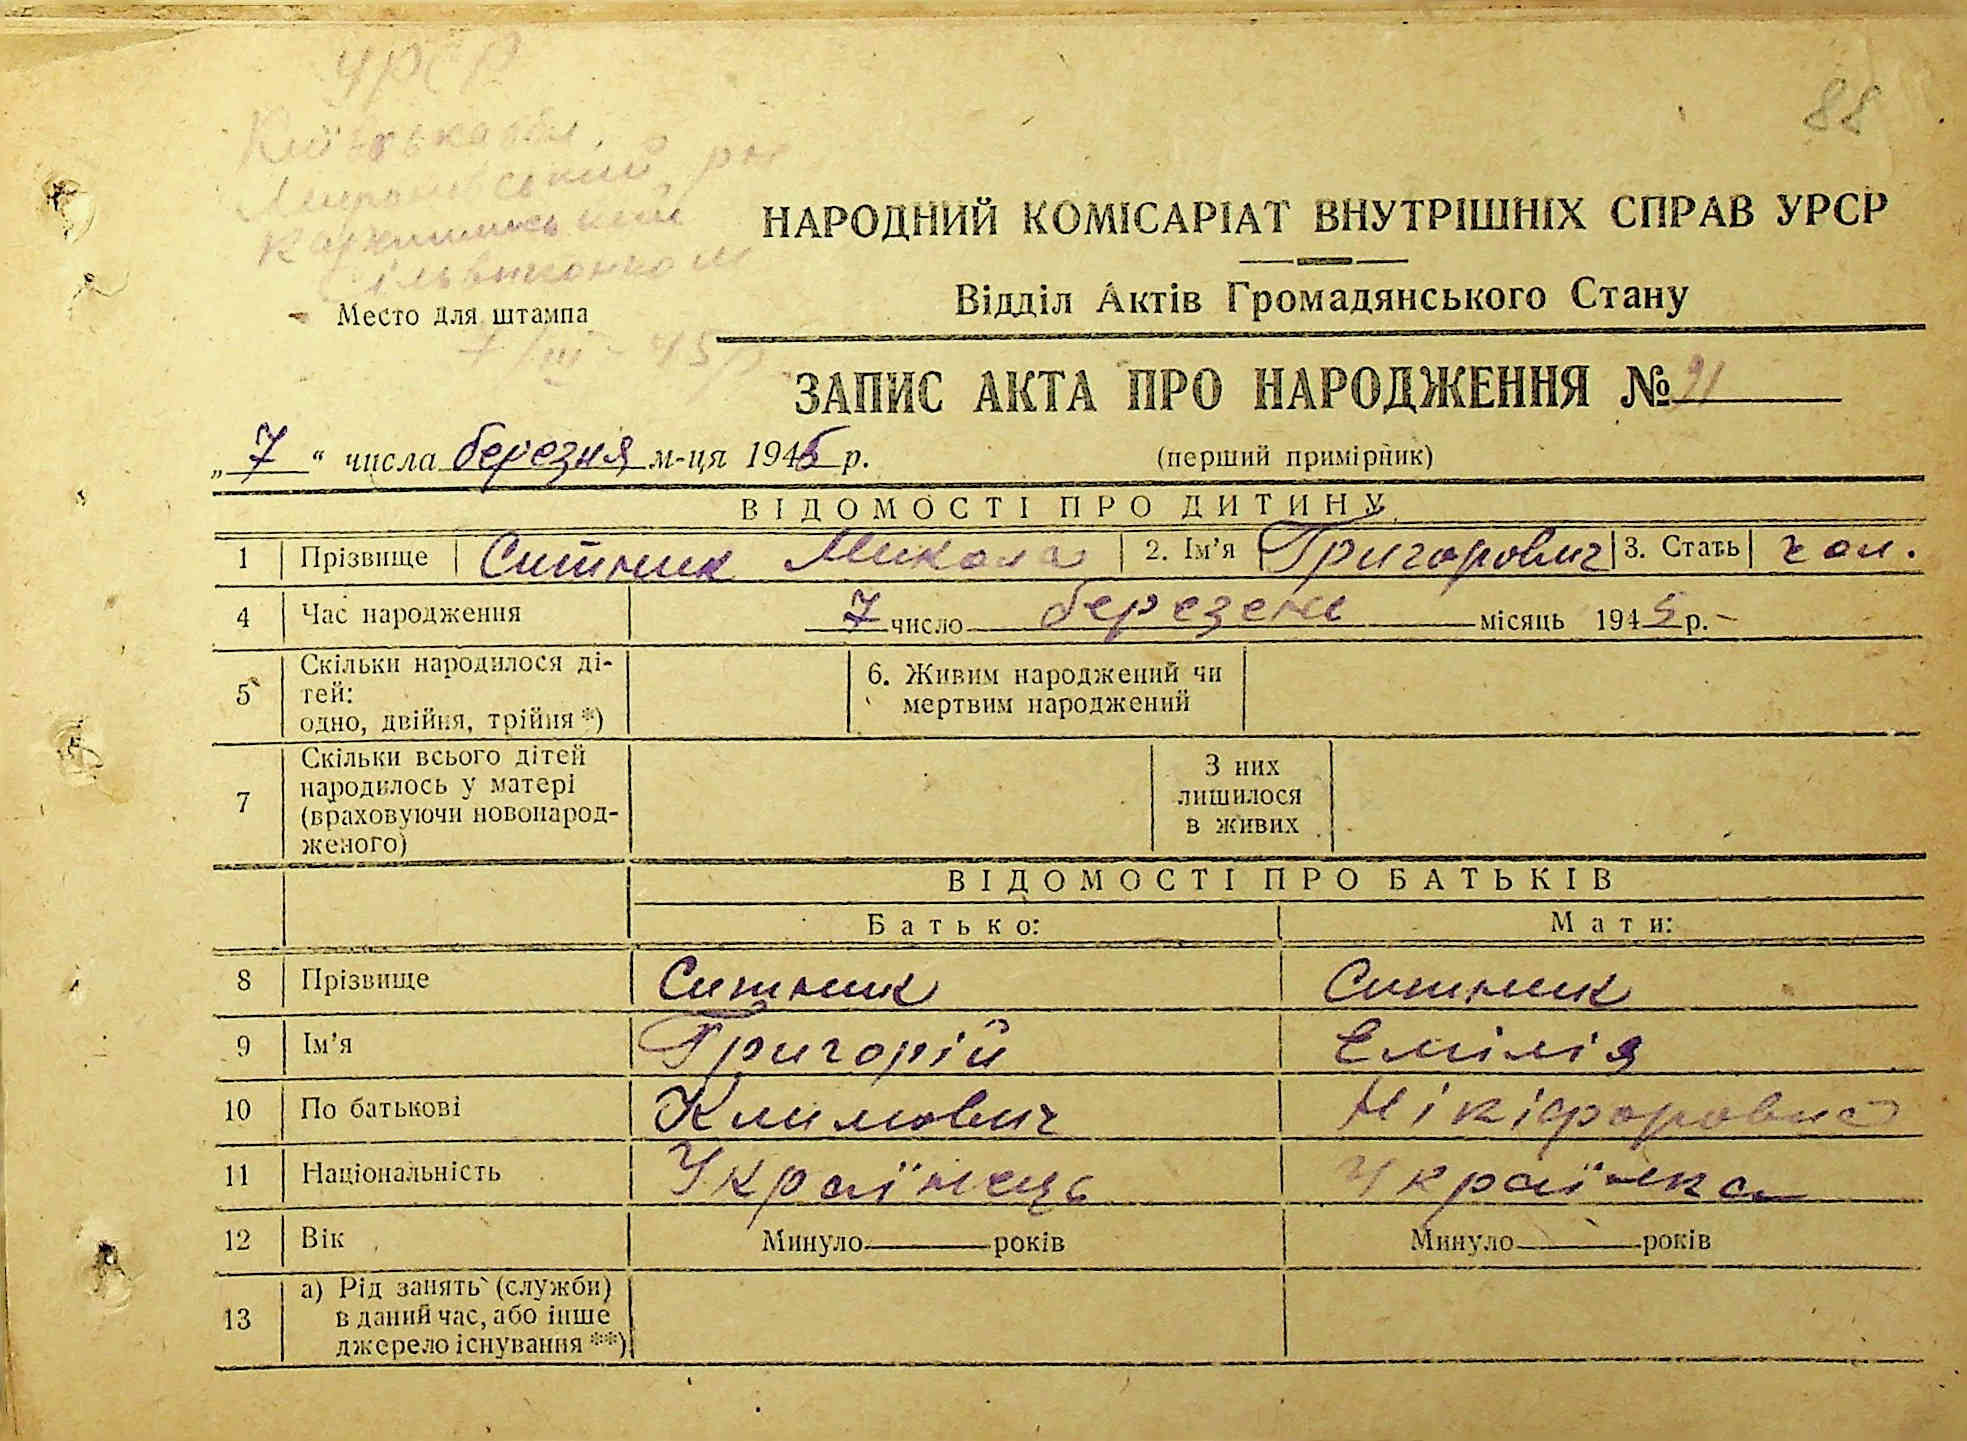 УРСР
88
Київська обл.
Миронівський р-н
НАРОДНИЙ КОМІСАРІАТ ВНУТРІШНІХ СПРАВ УРСР
сільвиконком
Відділ Актів Громадянського Стану
Место для штампа
7/III-45р.
ЗАПИС АКТА ПРО НАРОДЖЕННЯ № 91
„ 7 “ числа березня м-ця 1945 р.
(перший примірник)
ВІДОМОСТІ ПРО ДИТИНУ
1 Прізвище Ситник Микола 2. Ім'я Григорович 3. Стать чол.
4 Час народження 7 число березень місяць 1945 р.
5 Скільки народилося ді-
тей:
одно, двійня, трійня *)
6. Живим народжений чи
мертвим народжений
7 Скільки всього дітей
народилось у матері
(враховуючи новонарод-
женого)
З них
лишилося
в живих
ВІДОМОСТІ ПРО БАТЬКІВ
Батько: Мати:
8 Прізвище Ситник Ситник
9 Ім'я Григорій Емілія
10 По батькові Климович Нікіфоровна
11 Національність Українець Українка
12 Вік Минуло років Минуло років
13 а) Рід занять (служби)
в даний час, або інше
джерело існування **)